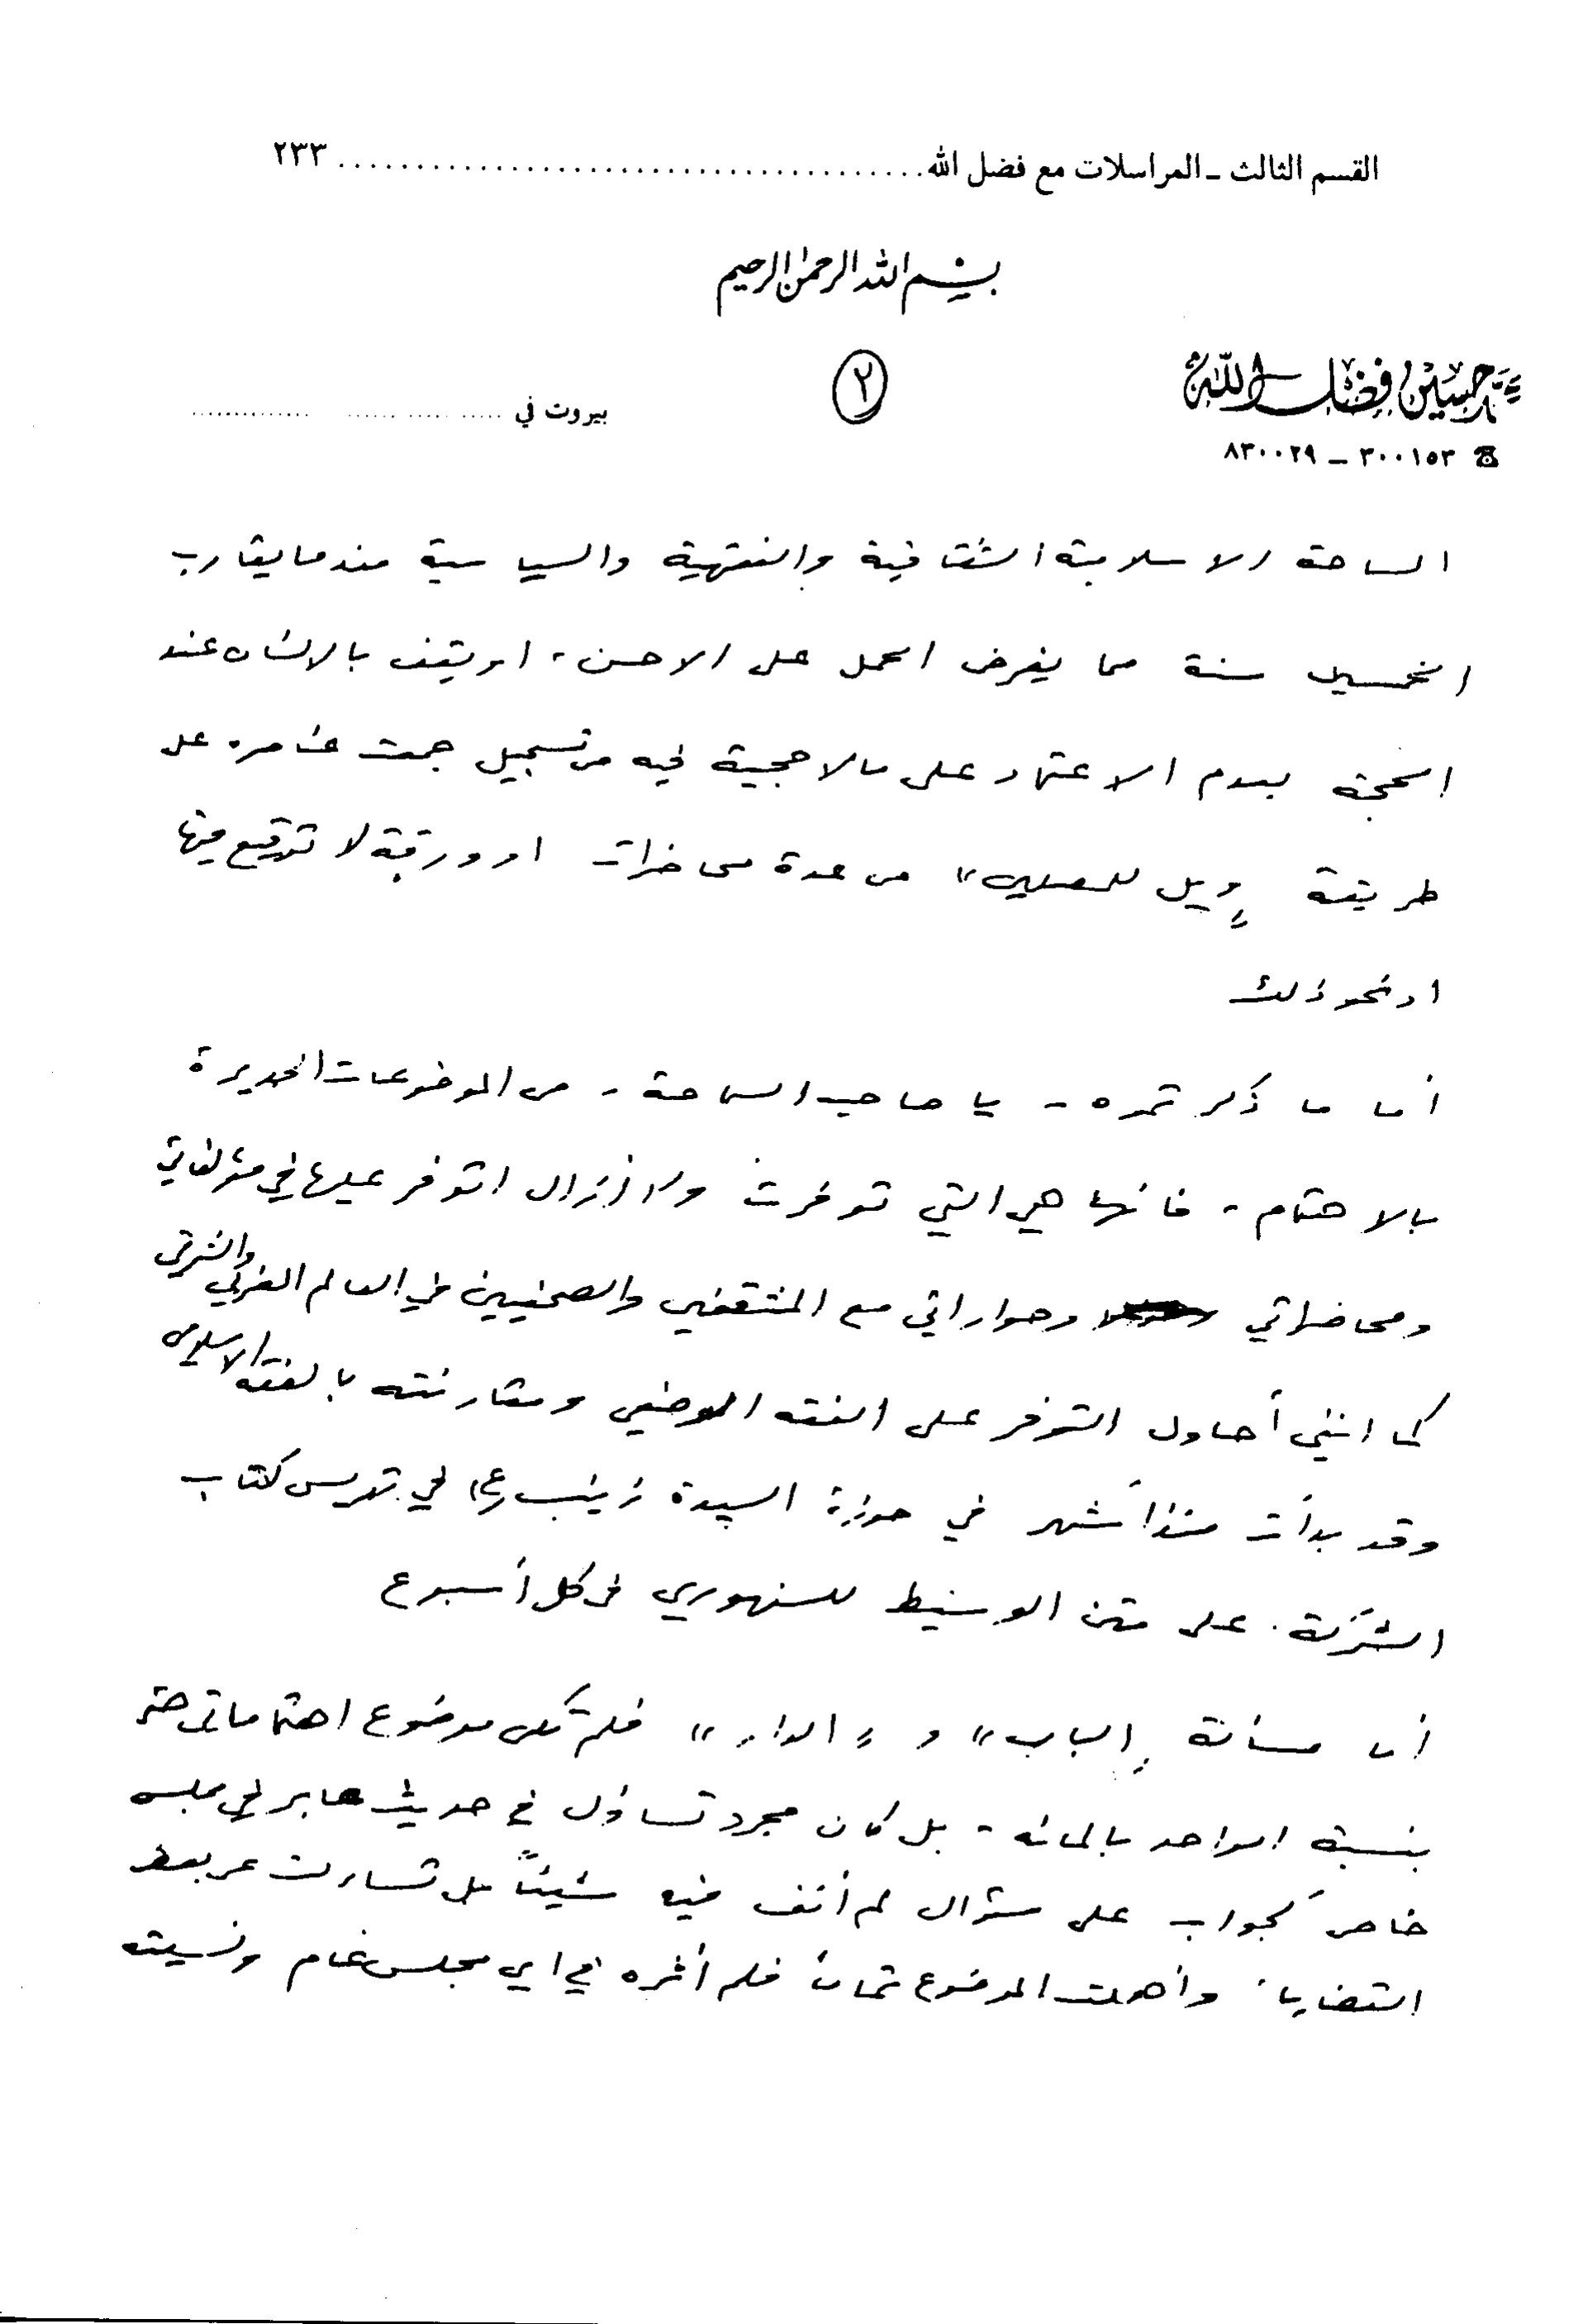 القسم الثالث ـ المراسلات مع فضل الله ........................................ ٢٣٣
بسم الله الرحمن الرحيم
محمد حسين فضل الله
٢
بيروت في ..............................
☎ ٣٠٠١٥٣ – ٨٣٠٠٢٩
الساحة الاسلامية الثقافية والفقهية والسياسية منذ ما يقارب
الخمسين سنة مما يفرض الحمل على الاحسن، او يقف بالانسان عند
الحجة بعدم الاعتماد على مالا حجية فيه من تسجيل جمعت عناصره على
طريقة «ويل للمصلين» من عدة محاضرات او ورقة لا توقيع فيها
او نحو ذلك
أما ما ذكرتموه - يا صاحب السماحة - من الموضوعات الجديرة
بالاهتمام - فانها هي التي توفرت ولا أزال اتوفر عليها في مؤلفاتي
ومحاضراتي وحواراتي مع المثقفين والصحفيين في العالم الغربي والشرقي
كما انني أحاول التوفر على الفقه الوضعي ومقارنته بالفقه الاسلامي
وقد بدأت منذ أشهر في حوزة السيدة زينب (ع) في تدريس كتاب
الشركة على متن الوسيط للسنهوري في كل أسبوع
أما مسألة «الباب» و «الدار» فلم تكن موضوع اهتماماتي حتى
بنسبة الواحد بالمائة - بل كان مجرد تساؤل في حديث عابر في مجلس
خاص كجواب على سؤال لم أنف فيه شيئاً بل تساءلت عن بعض
القضايا، وأهملت الموضوع تماماً فلم أثره في اي مجلس عام ونسيته